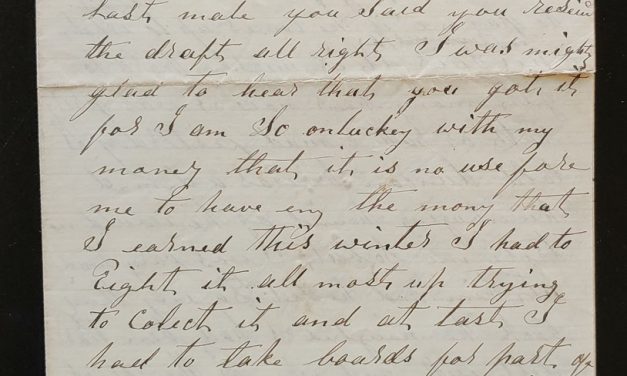 last male you said you receiv
the draft all right I was mighty
glad to hear that you got it
for I am So onluckey with my
money that it is no use fore
me to have eny the mony that
I earned this winter I had to
Eight it all most up trying
to Colect it and at last I
had to take boards for part of